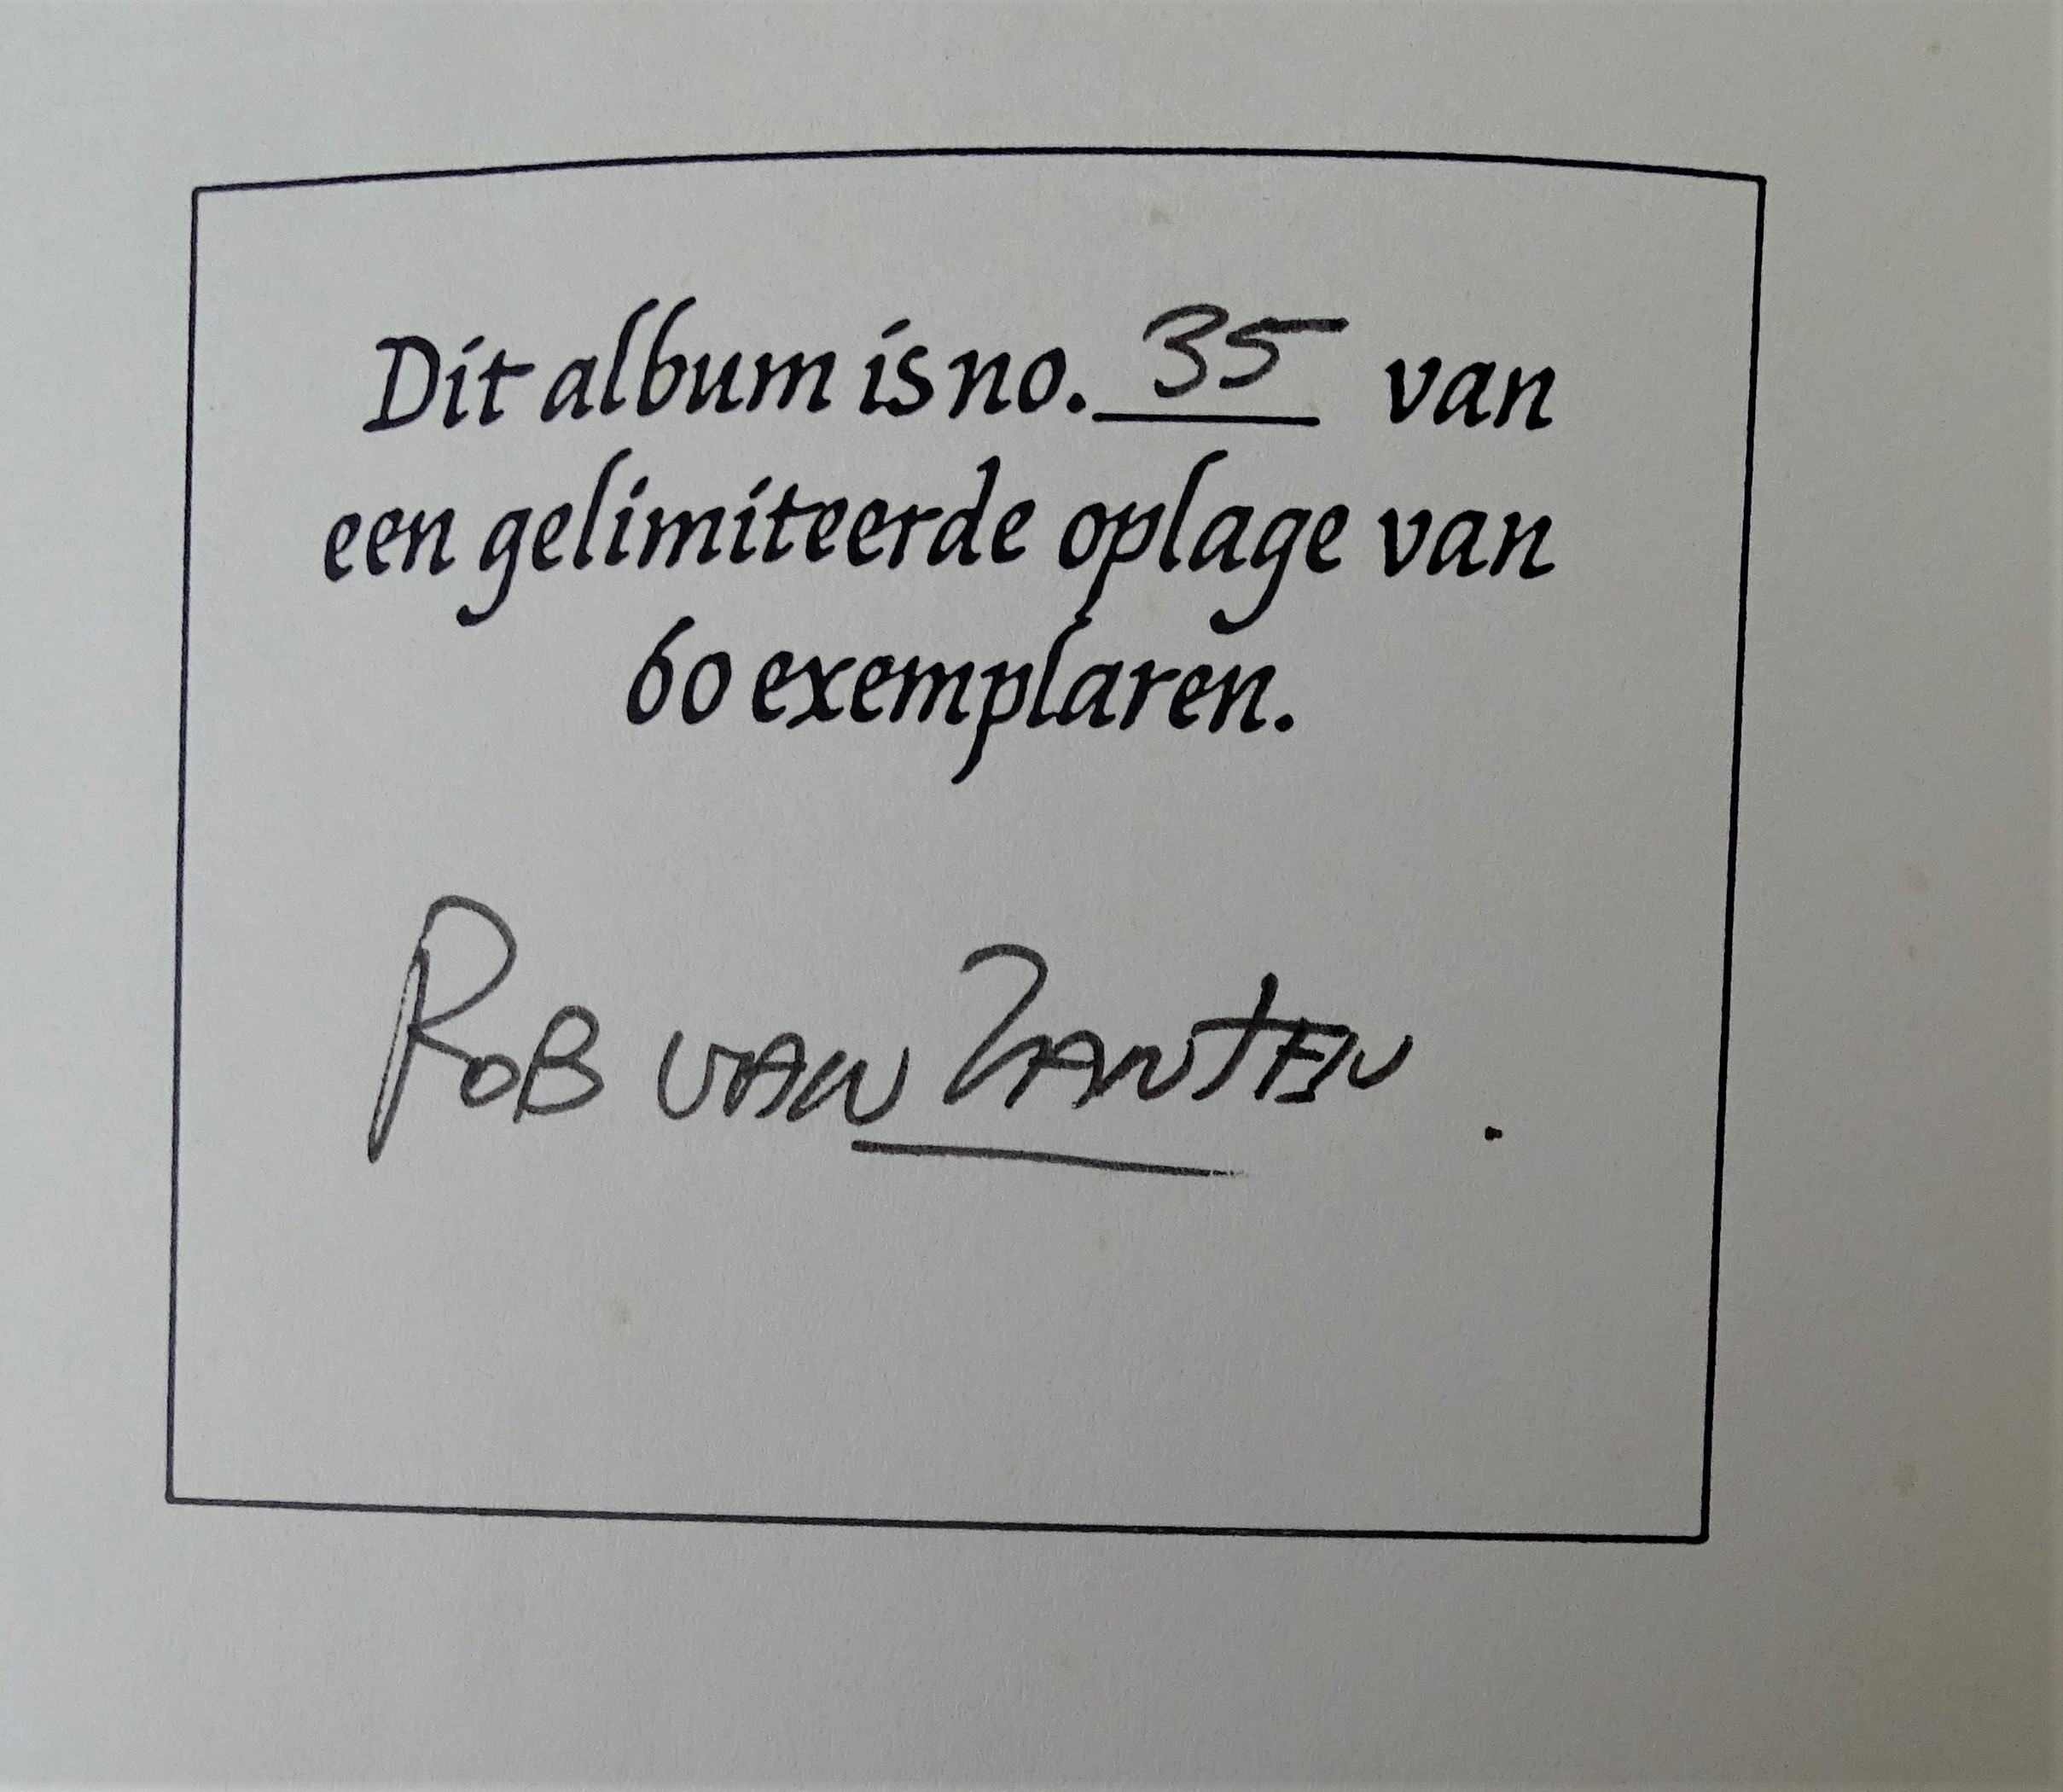 Dit album is no. 35 van
een gelimiteerde oplage van
60 exemplaren.
ROB VAN ZANTEN.